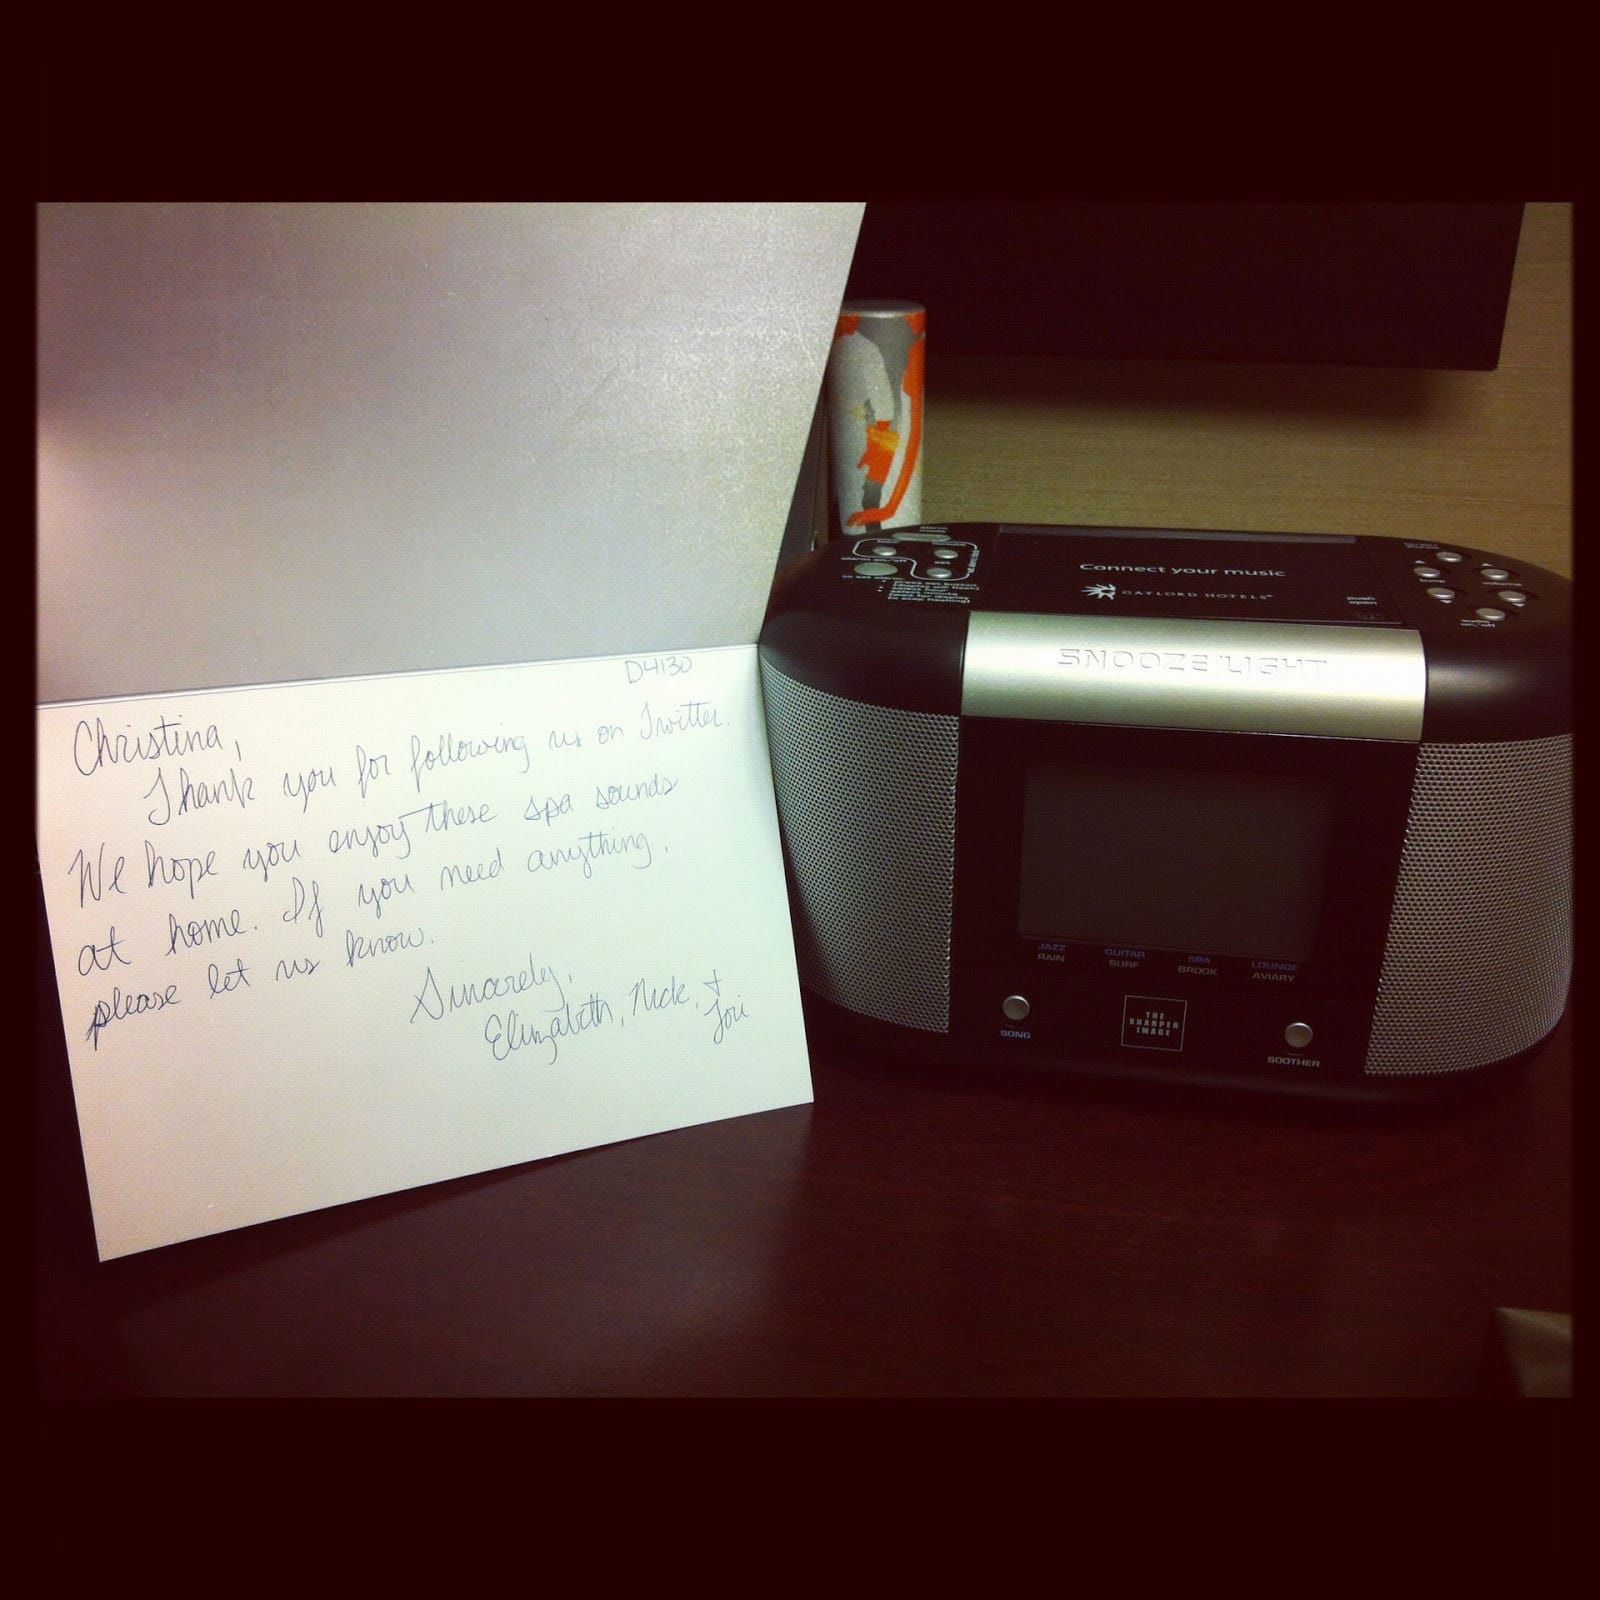 D4130
Christina,
Thank you for following us on Twitter.
We hope you enjoy these spa sounds
at home. If you need anything,
please let us know.
Sincerely,
Elizabeth, Nick, +
Tori
Connect your music
GAYLORD HOTELS
push
open
alarm on/off
to set alarm:
volume
SNOOZE/LIGHT
JAZZ GUITAR SPA LOUNGE
RAIN SURF BROOK AVIARY
SONG
THE
SHARPER
IMAGE
SOOTHER